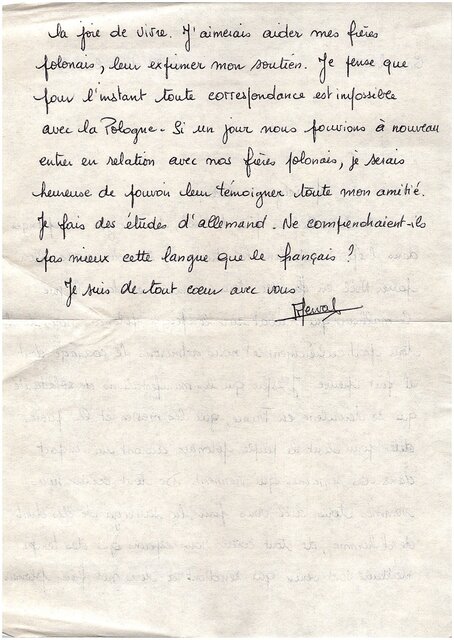 la joie de vivre. J'aimerais aider mes frères
polonais, leur exprimer mon soutien. Je pense que
pour l'instant toute correspondance est impossible
avec la Pologne. Si un jour nous pouvions à nouveau
entrer en relation avec nos frères polonais, je serais
heureuse de pouvoir leur témoigner toute mon amitié.
Je fais des études d'allemand. Ne comprendraient-ils
pas mieux cette langue que le français ?
Je suis de tout cœur avec vous